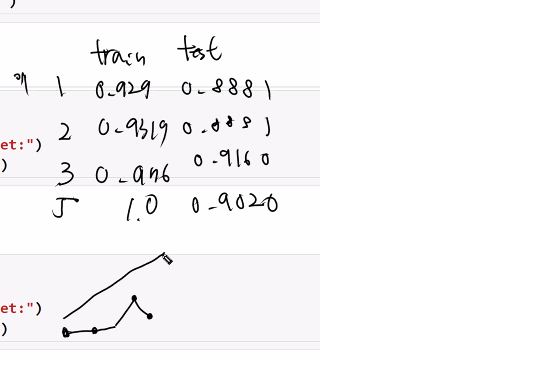 )
train test
1 0.929 0.8881
et:")
2 0.9319 0.8881
)
3 0.9160
5 1.0 0.9020
et:")
)